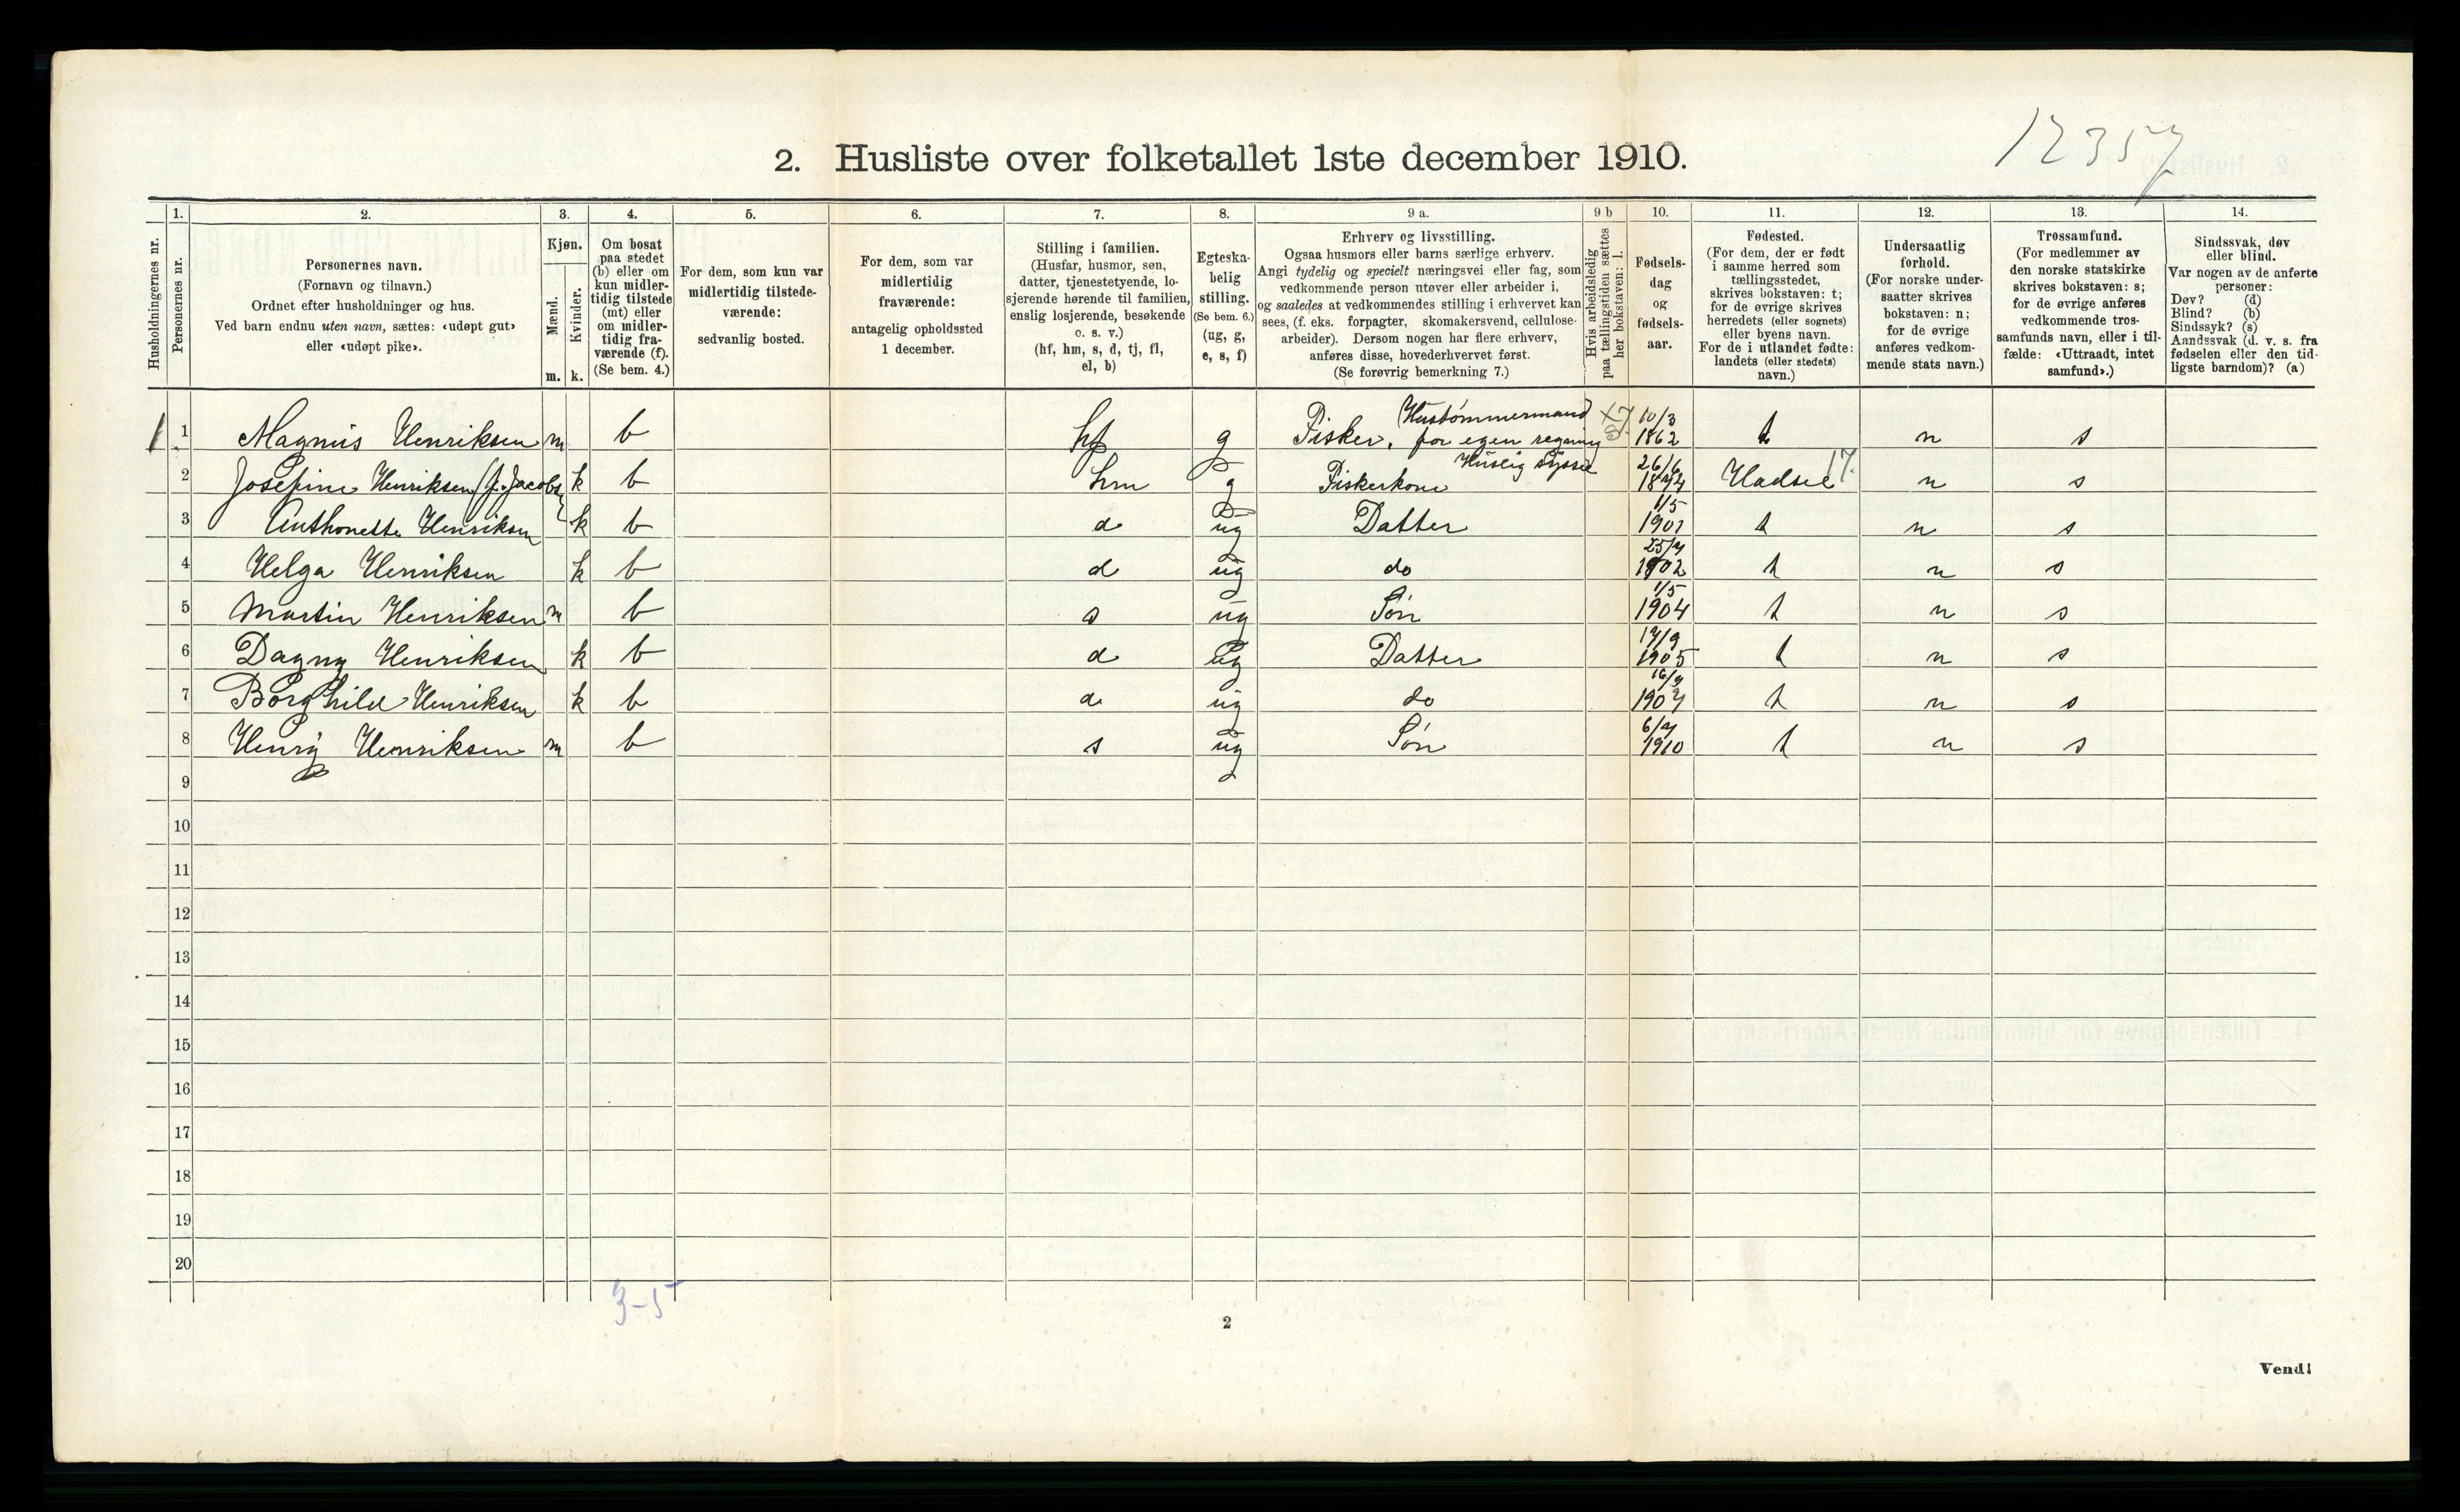 12357
2. Husliste over folketallet 1ste december 1910.
Husholdningernes nr.
1.
Personernes nr.
2.
Personernes navn.
(Fornavn og tilnavn.)
Ordnet efter husholdninger og hus.
Ved barn endnu uten navn, sættes: «udøpt gut»
eller «udøpt pike».
3.
Kjøn.
Mænd.
Kvinder.
m. k.
4.
Om bosat
paa stedet
(b) eller om
kun midler-
tidig tilstede
(mt) eller
om midler-
tidig fra-
værende (f).
(Se bem. 4.)
5.
For dem, som kun var
midlertidig tilstede-
værende:
sedvanlig bosted.
6.
For dem, som var
midlertidig
fraværende:
antagelig opholdssted
1 december.
7.
Stilling i familien.
(Husfar, husmor, søn,
datter, tjenestetyende, lo-
sjerende hørende til familien,
enslig losjerende, besøkende
o. s. v.)
(hf, hm, s, d, tj, fl,
el, b)
8.
Egteska-
belig
stilling.
(Se bem. 6.)
(ug, g,
e, s, f)
9 a.
Erhverv og livsstilling.
Ogsaa husmors eller barns særlige erhverv.
Angi tydelig og specielt næringsvei eller fag, som
vedkommende person utøver eller arbeider i,
og saaledes at vedkommendes stilling i erhvervet kan
sees, (f. eks. forpagter, skomakersvend, cellulose-
arbeider). Dersom nogen har flere erhverv,
anføres disse, hovederhvervet først.
(Se forøvrig bemerkning 7.)
9 b
Hvis arbeidsledig
paa tællingstiden sættes
her bokstaven: l.
10.
Fødsels-
dag
og
fødsels-
aar.
11.
Fødested.
(For dem, der er født
i samme herred som
tællingsstedet,
skrives bokstaven: t;
for de øvrige skrives
herredets (eller sognets)
eller byens navn.
For de i utlandet fødte:
landets (eller stedets)
navn.)
12.
Undersaatlig
forhold.
(For norske under-
saatter skrives
bokstaven: n;
for de øvrige
anføres vedkom-
mende stats navn.)
13.
Trossamfund.
(For medlemmer av
den norske statskirke
skrives bokstaven: s;
for de øvrige anføres
vedkommende tros-
samfunds navn, eller i til-
fælde: «Uttraadt, intet
samfund».)
14.
Sindssvak, døv
eller blind.
Var nogen av de anførte
personer:
Døv? (d)
Blind? (b)
Sindssyk? (s)
Aandssvak (d. v. s. fra
fødselen eller den tid-
ligste barndom)? (a)
1 1 Magnus Henriksen m b hf g Fisker, Hustømmermand for egen regning 10/3 1862 t n s
2 Josefine Henriksen (f. Jacobs k b hm g Fiskerkone Huslig syssel 26/6 1874 Hadsel 17. n s
3 Anthonette Henriksen k b d ug Datter 1/5 1901 t n s
4 Helga Henriksen k b d ug do 25/4 1902 t n s
5 Martin Henriksen m b s ug Søn 1/5 1904 t n s
6 Dagny Henriksen k b d ug Datter 17/9 1905 t n s
7 Borghild Henriksen k b d ug do 16/9 1907 t n s
8 Henry Henriksen m b s ug Søn 6/7 1910 t n s
9
10
11
12
13
14
15
16
17
18
19
20
3-5
2
Vend!